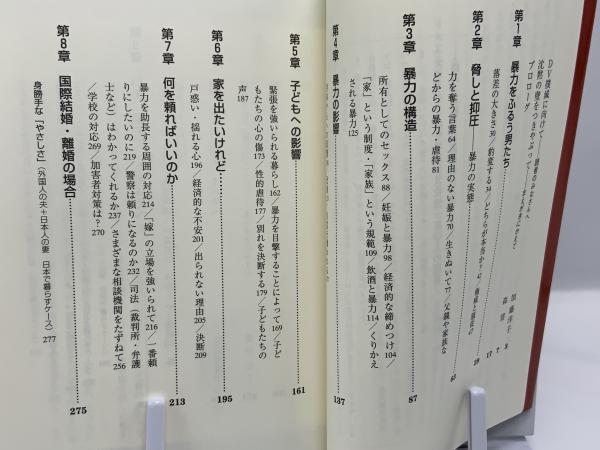 DV根絶に向けて
沈黙の壁をつきやぶって
プロローグ
加藤洋子
第1章 暴力をふるう男たち
落差の大きさ30／豹変する34／どちらが本当か
39
第2章 脅しと抑圧――暴力の実態
力を奪う言葉64／理由のない暴力70／生きぬいて77／父親や家族な
どからの暴力・虐待81
63
第3章 暴力の構造
所有としてのセックス88／妊娠と暴力98／経済的な締めつけ104／
「家」という制度・「家族」という規範109／飲酒と暴力114／くりかえ
される暴力125
87
第4章 暴力の影響
137
第5章 子どもへの影響
緊張を強いられる暮らし162／暴力を目撃することによって169／子ど
もたちの心の傷173／性的虐待177／別れを決断する179／子どもたちの
声187
161
第6章 家を出たいけれど…
戸惑い・揺れる心196／経済的な不安201／出られない理由205／決断209
195
第7章 何を頼ればいいのか
暴力を助長する周囲の対応214／「嫁」の立場を強いられて216／一番頼
りにしたいのに219／警察は頼りになるのか232／司法（裁判所・弁護
士など）はわかってくれるか237／さまざまな相談機関をたずねて256
／学校の対応269／加害者対策は？270
213
第8章 国際結婚・離婚の場合
身勝手な「やさしさ」（外国人の夫＋日本人の妻 日本で暮らすケース）277
275